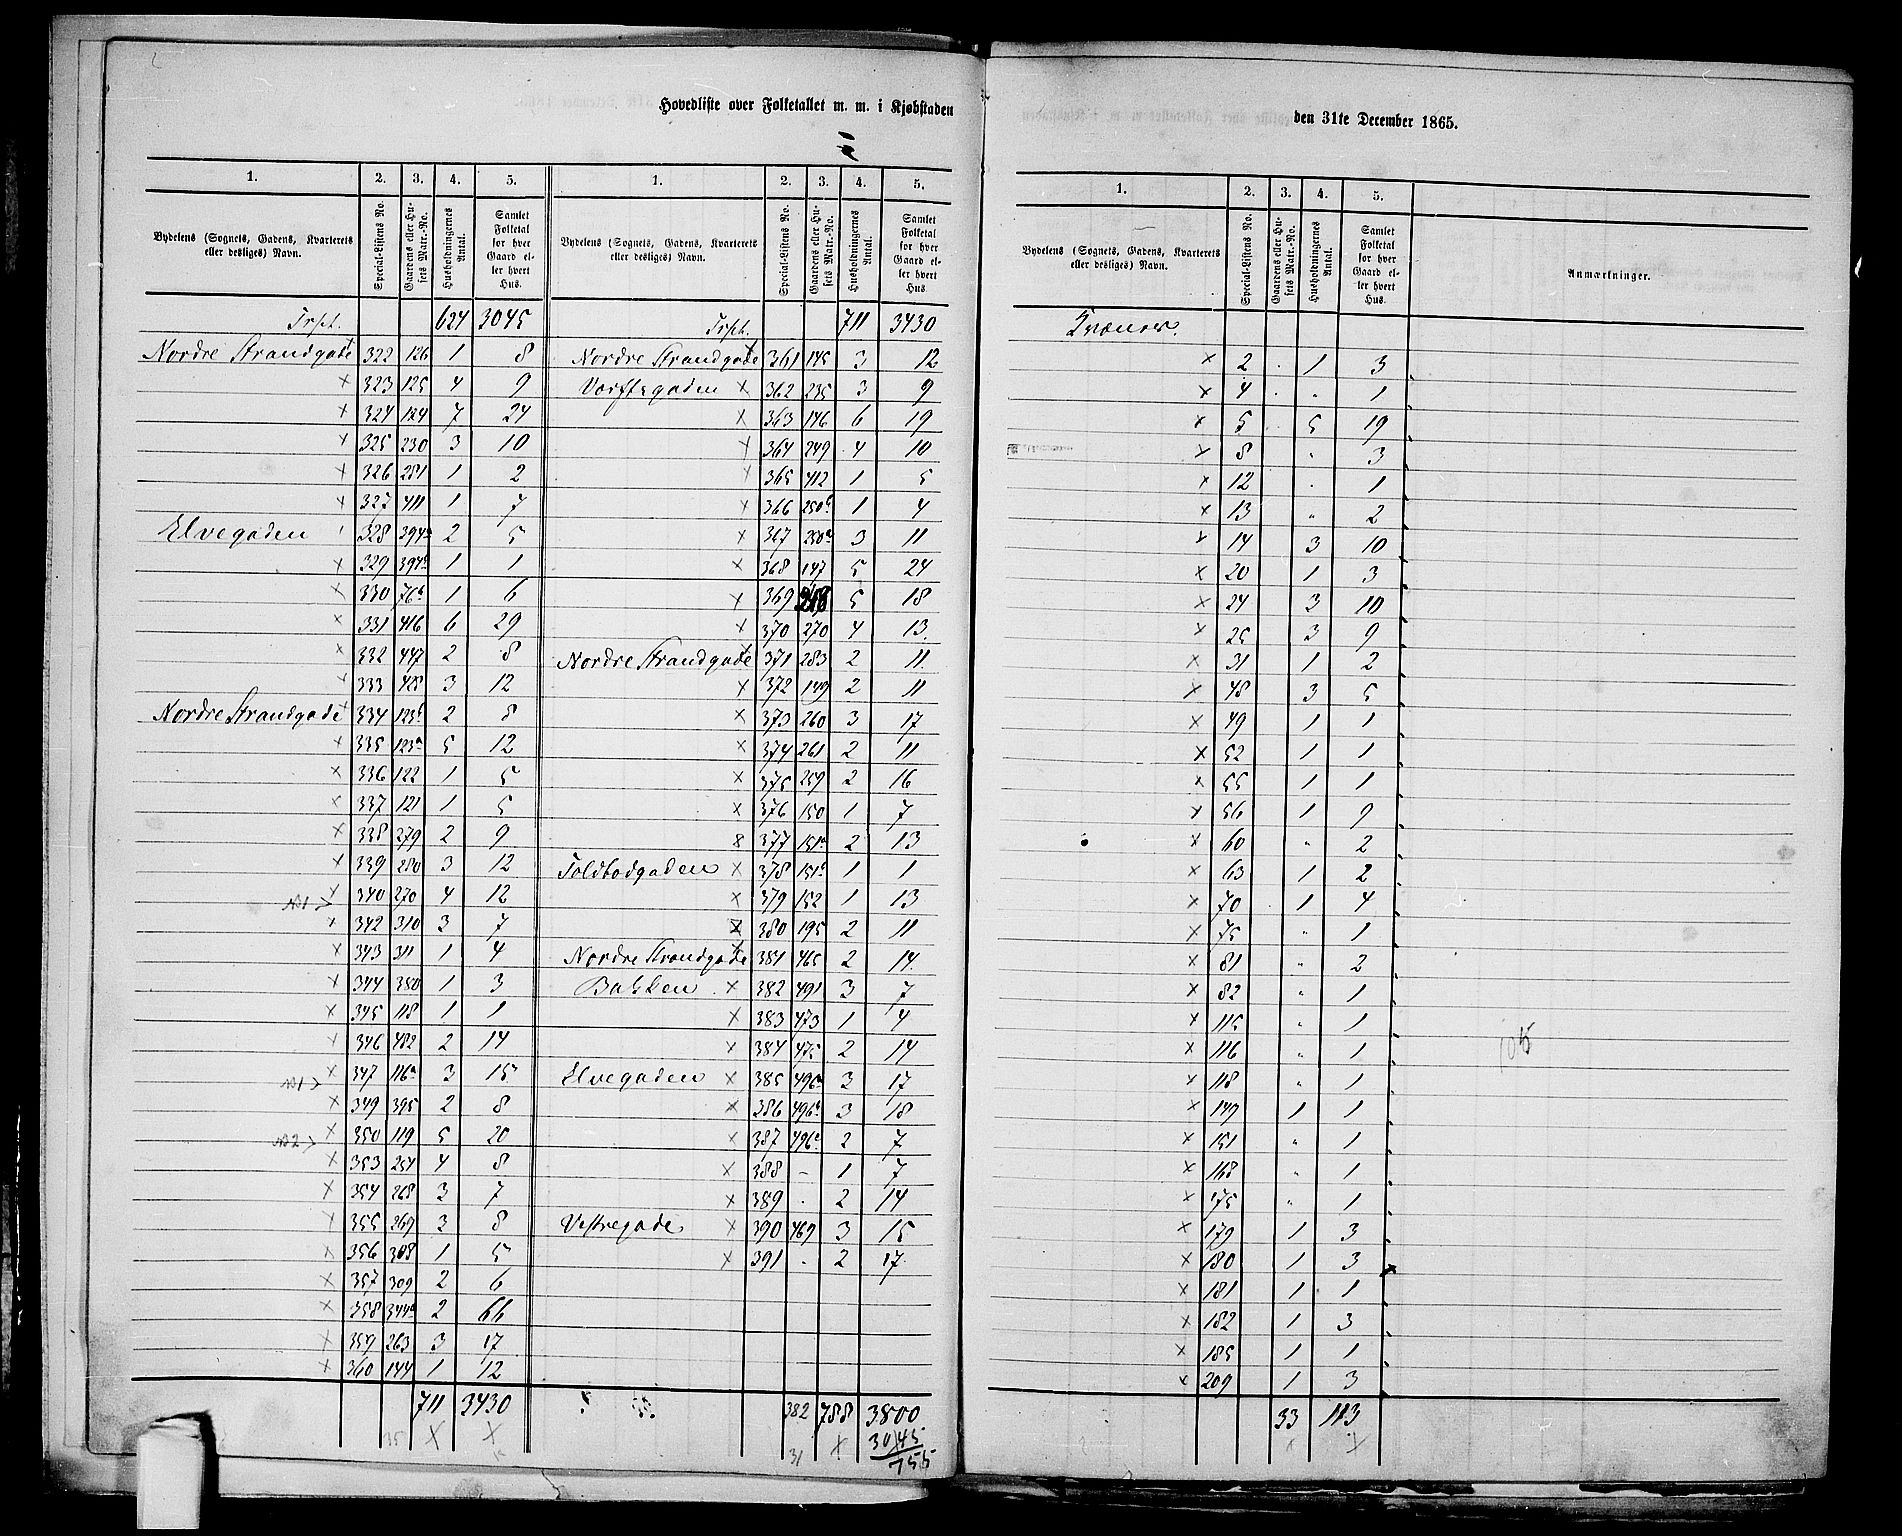 Hovedliste over Folketallet m. m. i Kjøbstaden
den 31te December 1865.
1. 2. 3. 4. 5. 1. 2. 3. 4. 5.
Bydelens (Sognets, Gadens, Kvarterets eller desliges) Navn. Special-Listens No. Gaardens eller Husets Matr.-No. Husholdningernes Antal. Samlet Folketal for hver Gaard eller hvert Hus. Bydelens (Sognets, Gadens, Kvarterets eller desliges) Navn. Special-Listens No. Gaardens eller Husets Matr.-No. Husholdningernes Antal. Samlet Folketal for hver Gaard eller hvert Hus.
Trspt. 624 3045 Trspt. 711 3430
Nordre Strandgade 322 126 1 8 Nordre Strandgade 361 145 3 12
x 323 125 4 9 Værftsgaden x 362 235 3 9
x 324 124 7 24 x 363 146 6 19
x 325 230 3 10 x 364 249 4 10
x 326 281 1 2 x 365 412 1 5
x 327 411 1 7 x 366 250b 1 4
Elvegaden 328 394a 2 5 x 367 250a 3 11
x 329 394b 1 1 x 368 147 5 24
x 330 76b 1 6 x 369 248 5 18
x 331 416 6 29 x 370 270 4 13.
x 332 447 2 8 Nordre Strandgade 371 283 2 11
x 333 428 3 12 x 372 149 2 11
Nordre Strandgade 334 123b 2 8 x 373 260 3 17
x 335 123a 5 12 x 374 261 2 11
x 336 122 1 5 x 375 259 2 16
x 337 121 1 5 x 376 150 1 7
x 338 279 2 9 x 377 151a 2 13
x 339 280 3 12 Toldbodgaden x 378 151b 1 1
x 340 270 4 12 x 379 152 1 13
x 342 310 3 7 x 380 195 2 11
x 343 311 1 4 Nordre Strandgade 381 465 2 14.
x 344 350 1 3 Bakken x 382 491 3 7
x 345 118 1 1 x 383 473 1 4
x 346 482 2 14 x 384 475 2 14
x 347 116a 3 15 Elvegaden x 385 496a 3 17
x 349 395 2 8 x 386 496b 3 18
x 350 119 5 20 x 387 496c 2 7
x 353 254 4 8 x 388 - 1 7
x 354 268 3 7 x 389 . 2 14
x 355 269 3 8 Vestregade x 390 469 3 15
x 356 308 1 5 x 391 . 2 17
x 357 309 2 6
x 358 344a 2 66
x 359 263 3 17
x 360 144 1 12
711 3430 382 788 3800
35 x x 31 x 3045
755
1. 2. 3. 4. 5.
Bydelens (Sognets, Gadens, Kvarterets eller desliges) Navn. Special-Listens No. Gaardens eller Husets Matr.-No. Husholdningernes Antal. Samlet Folketal for hver Gaard eller hvert Hus. Anmærkninger.
Kvæner.
x 2 1 3
x 4 " 1
x 5 5 19
x 8 " 3
x 12 " 1
x 13 " 2
x 14 3 10
x 20 1 3
x 24 3 10
x 25 3 9
x 31 1 2
x 48 3 5
x 49 1 1
x 52 1 1
x 55 1 1
x 56 1 9
x 60 " 2
x 63 1 2
x 70 1 4
x 75 " 1
x 81 " 2
x 82 " 1
x 115 " 1
x 116 " 1
x 118 " 1
x 149 1 1
x 151 " 1
x 168 " 1
x 175 " 1
x 179 1 3
x 180 1 3
x 181 1 1
x 182 1 3
x 185 1 1
x 209 1 3
33 113
x x
105